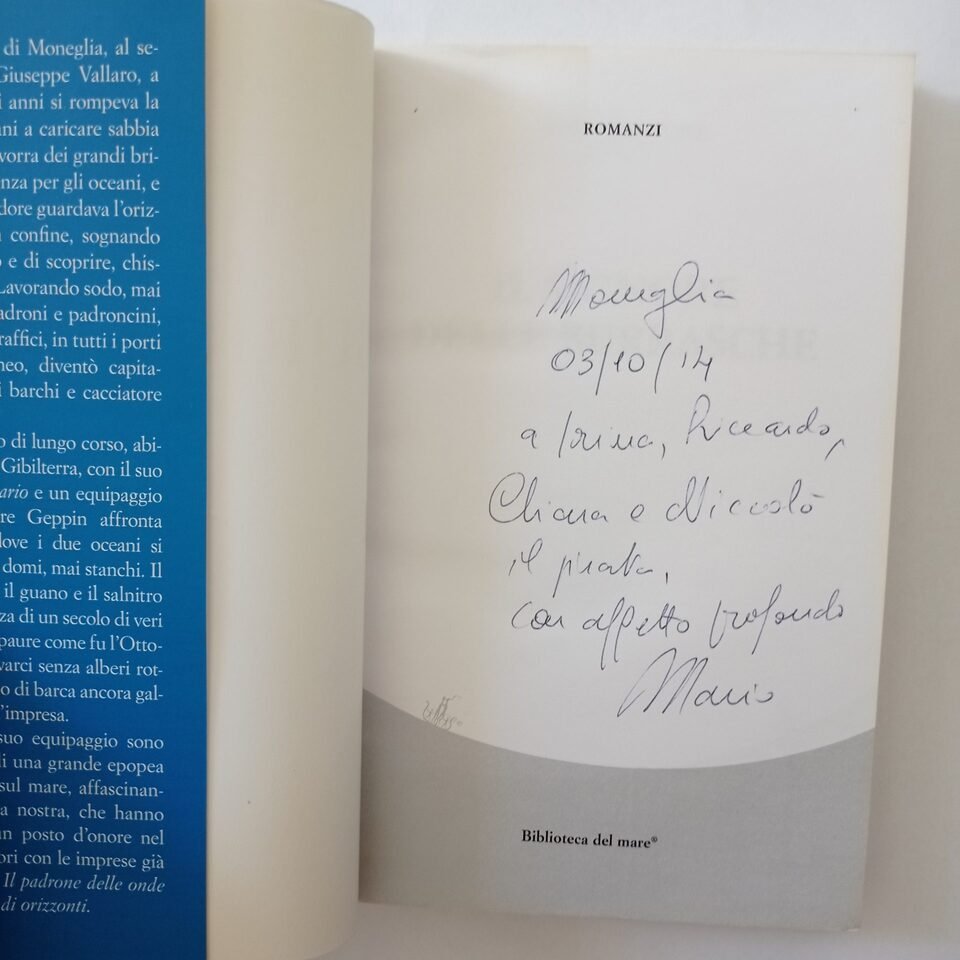 di Moneglia, al se-
Giuseppe Vallaro, a
i anni si rompeva la
ni a caricare sabbia
vorra dei grandi bri-
nza per gli oceani, e
dore guardava l'oriz-
confine, sognando
o e di scoprire, chis-
Lavorando sodo, mai
adroni e padroncini,
raffici, in tutti i porti
neo, diventò capita-
i barchi e cacciatore
o di lungo corso, abi-
Gibilterra, con il suo
ario e un equipaggio
re Geppin affronta
dove i due oceani si
domi, mai stanchi. Il
il guano e il salnitro
za di un secolo di veri
paure come fu l'Otto-
varci senza alberi rot-
o di barca ancora gal-
l'impresa.
suo equipaggio sono
di una grande epopea
sul mare, affascinan-
a nostra, che hanno
un posto d'onore nel
ori con le imprese già
Il padrone delle onde
di orizzonti.
ROMANZI
Moneglia
03/10/14
a Irina, Riccardo,
Chiara e Niccolò
il pirata,
con affetto profondo
Mario
Biblioteca del mare®